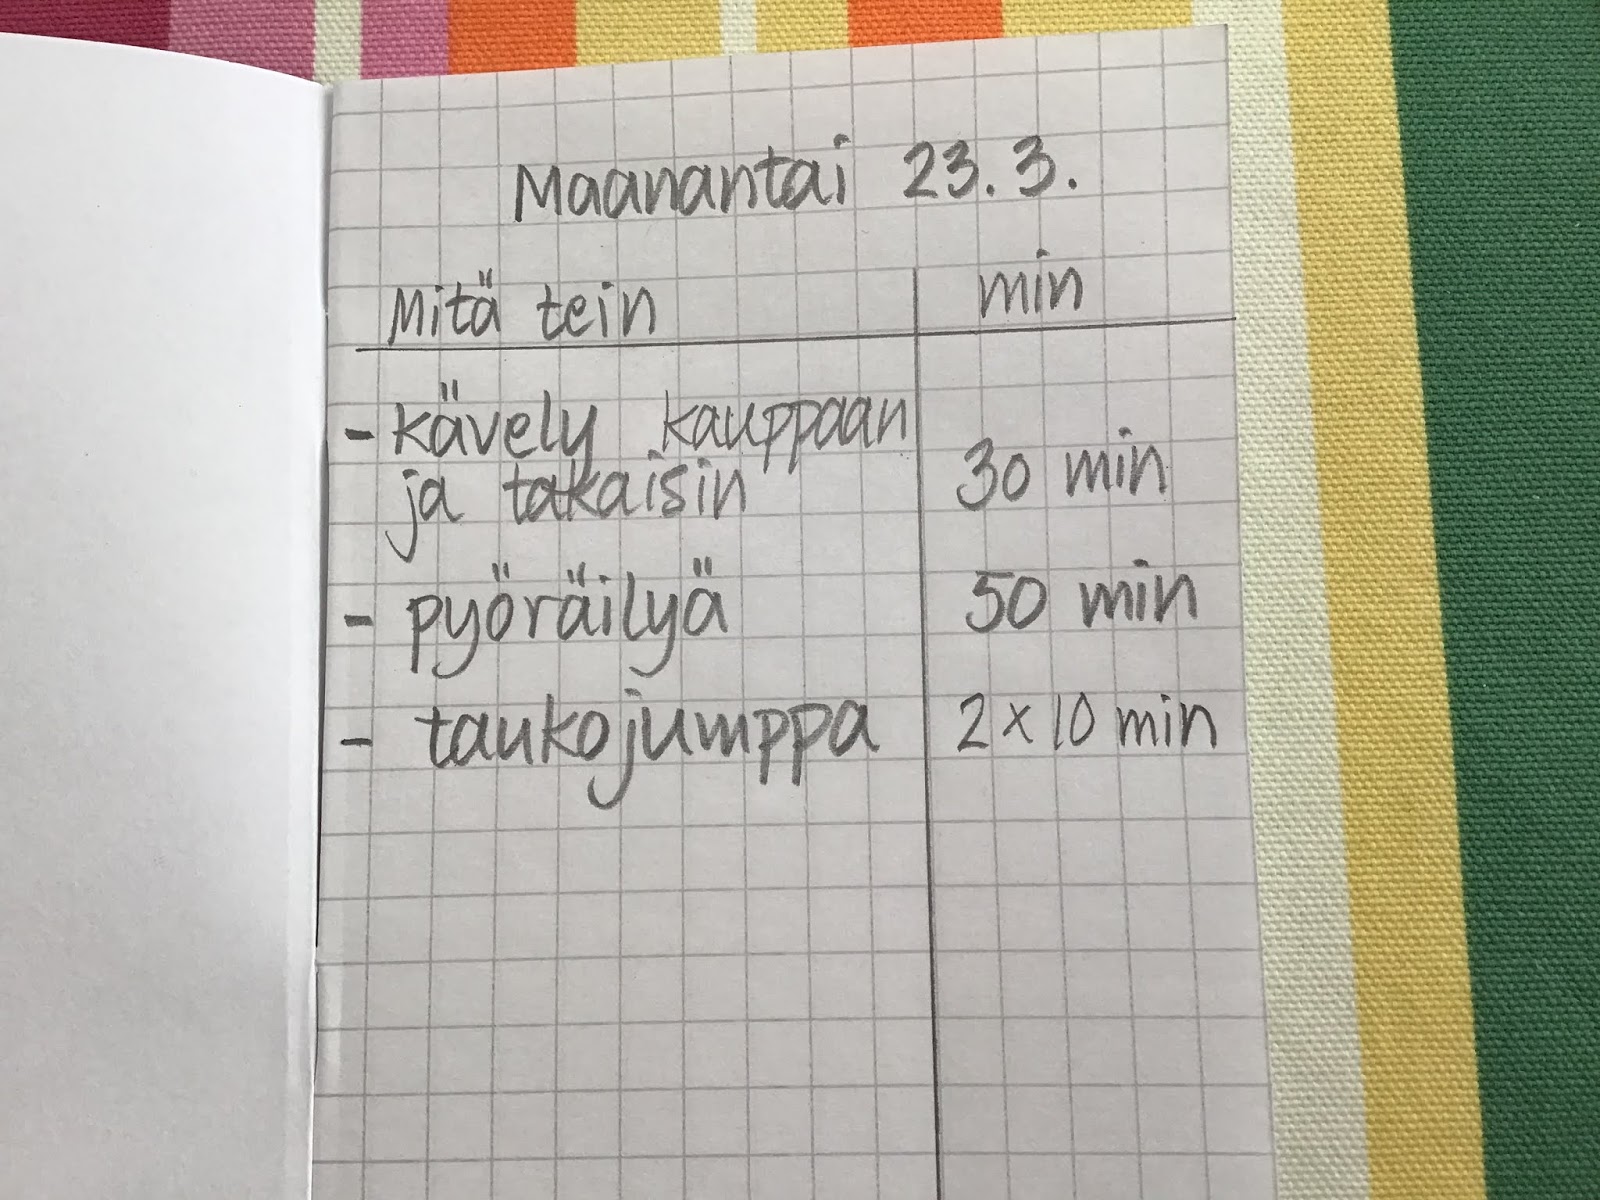 Maanantai 23.3.
Mitä tein min
- kävely kauppaan
ja takaisin 30 min
- pyöräilyä 50 min
- taukojumppa 2 x 10 min